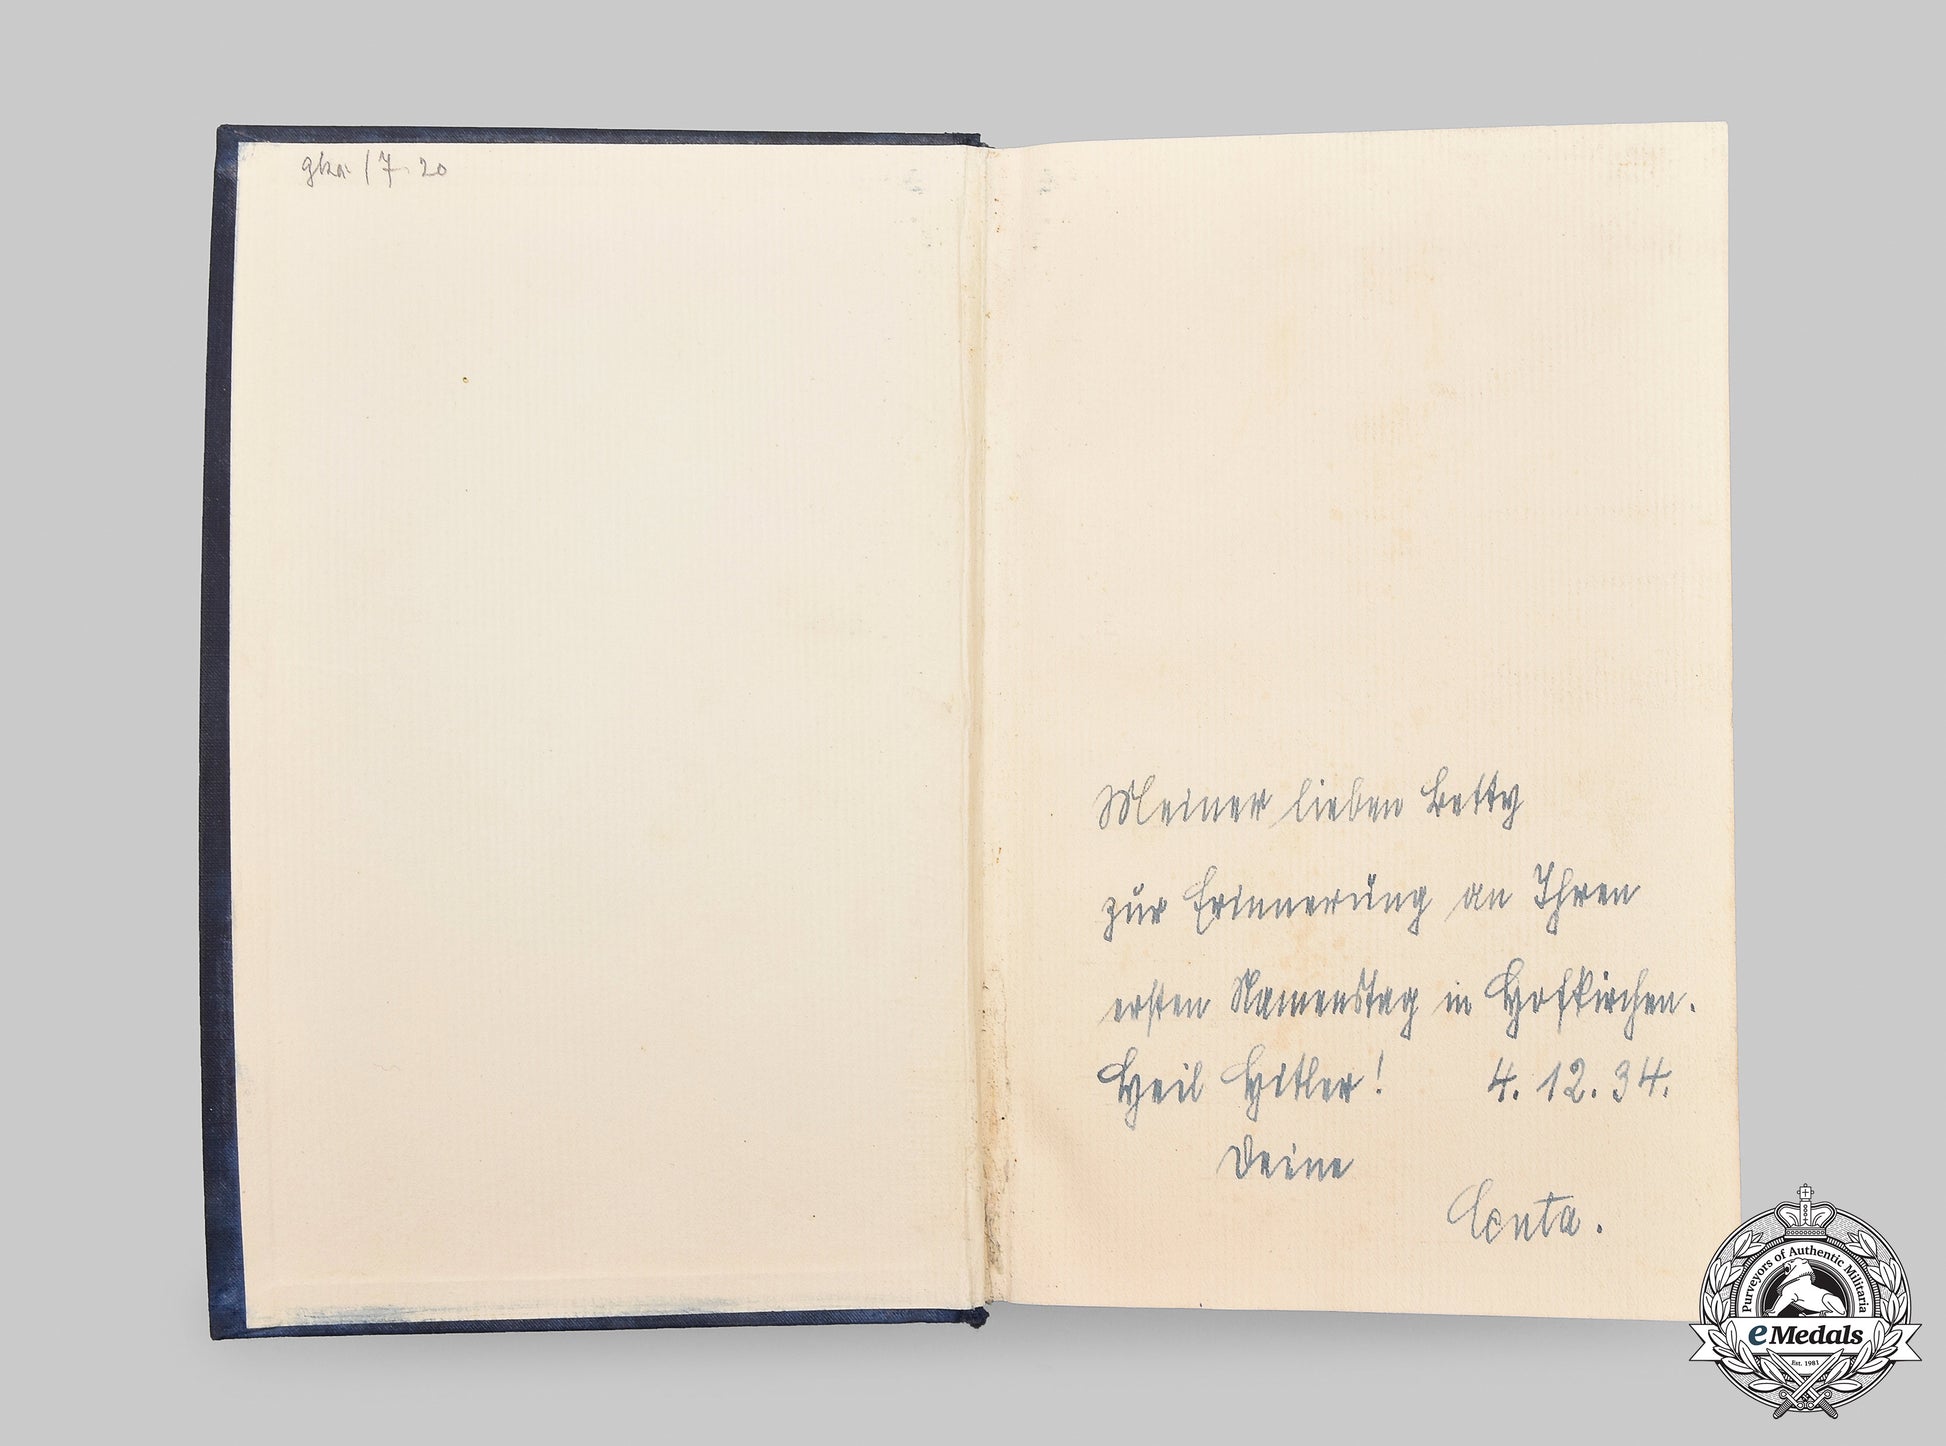 /7.20
Meiner lieben Betty
zur Erinnerung an Ihren
ersten Namenstag in Hofkirchen.
Heil Hitler! 4.12.34.
Deine
Centa.
Purveyors of Authentic Militaria
eMedals
Est. 1983